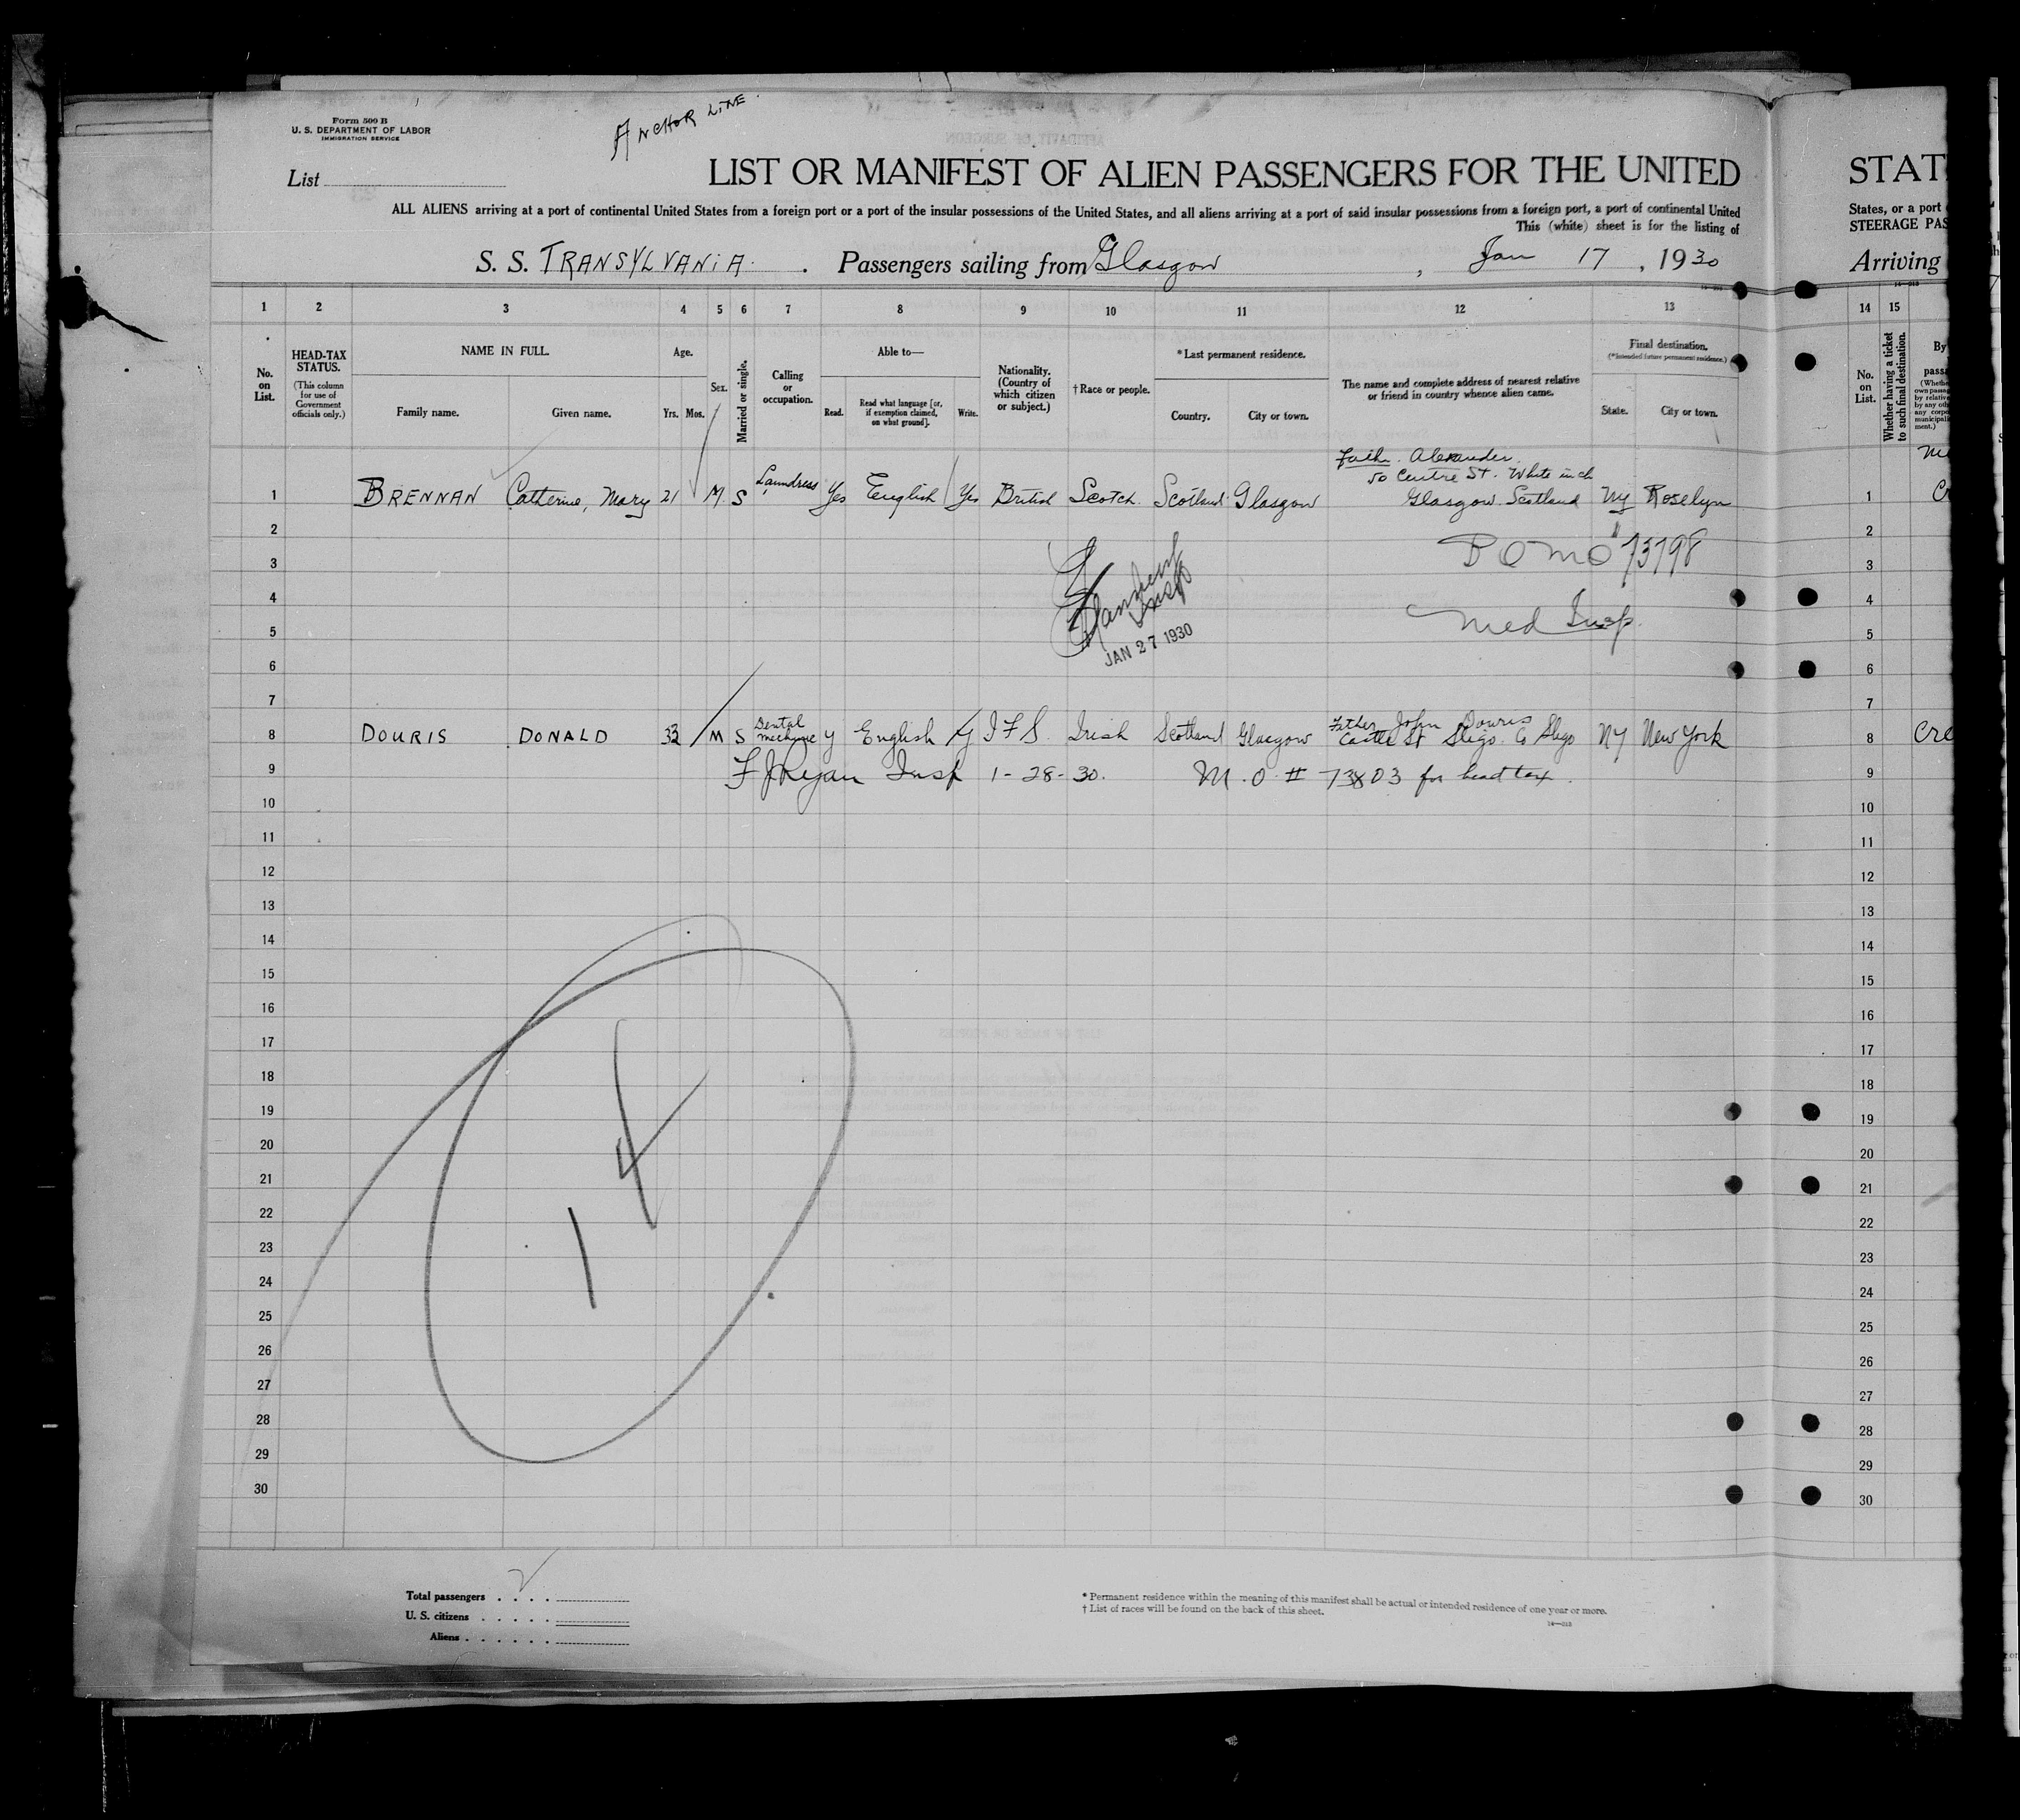 ANCHOR LINE
Form 500 B
U. S. DEPARTMENT OF LABOR
IMMIGRATION SERVICE
List
LIST OR MANIFEST OF ALIEN PASSENGERS FOR THE UNITED
STAT
ALL ALIENS arriving at a port of continental United States from a foreign port or a port of the insular possessions of the United States, and all aliens arriving at a port of said insular possessions from a foreign port, a port of continental United
States, or a port
This (white) sheet is for the listing of
STEERAGE PAS
S. S. TRANSYLVANIA. Passengers sailing from Glasgow, Jan 17, 1930
Arriving
1 2 3 4 5 6 7 8 9 10 11 12 13 14 15
No. on List.
HEAD-TAX STATUS.
(This column for use of Government officials only.)
NAME IN FULL.
Family name. Given name.
Age.
Yrs. Mos.
Sex.
Married or single.
Calling or occupation.
Able to—
Read. Read what language [or, if exemption claimed, on what ground]. Write.
Nationality. (Country of which citizen or subject.)
† Race or people.
* Last permanent residence.
Country. City or town.
The name and complete address of nearest relative or friend in country whence alien came.
Final destination.
(* Intended future permanent residence.)
State. City or town.
No. on List.
Whether having a ticket to such final destination.
By
Father. Alexander.
50 Centre St. Whiteinch
1 BRENNAN Catherine, Mary 21 M S Laundress Yes English Yes British Scotch. Scotland Glasgow Glasgow. Scotland NY Roselyn 1
2 2
3 73798 3
4 Insp 4
5 JAN 27 1930 Med Insp. 5
6 6
7 7
8 DOURIS DONALD 33 M S Dental mechanic y English y I F S. Irish Scotland Glasgow Father John Douris Castle St Sligo. Co Sligo NY New York 8 Cre
9 F J Ryan Insp 1-28-30. M.O. # 73803 for head tax. 9
10 10
11 11
12 12
13 13
14 14
15 15
16 16
17 17
18 18
19 19
20 20
21 21
22 22
23 23
24 24
25 25
26 26
27 27
28 28
29 29
30 30
14
Total passengers 2
U. S. citizens
Aliens
* Permanent residence within the meaning of this manifest shall be actual or intended residence of one year or more.
† List of races will be found on the back of this sheet.